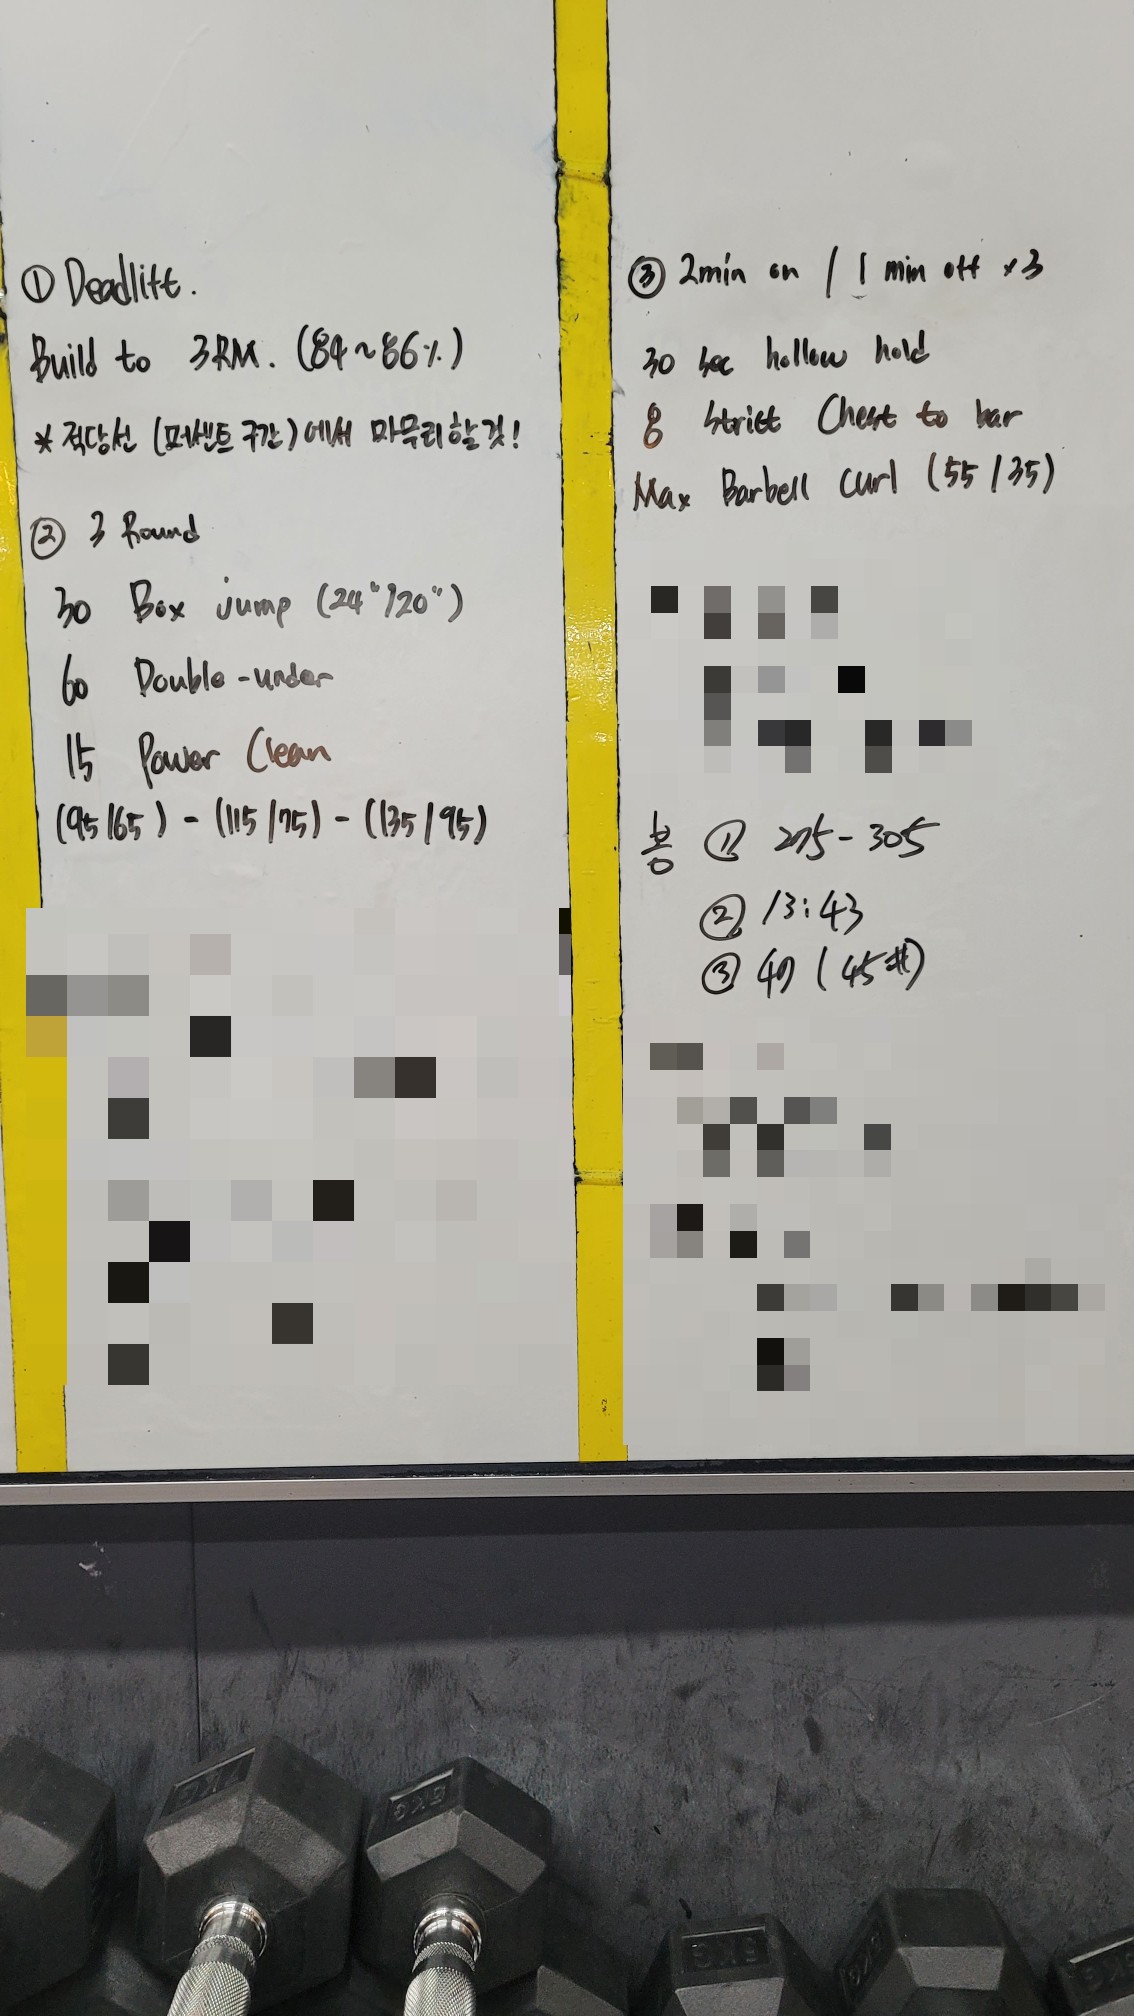 ① Deadlift.
Build to 3RM. (84~86%)
*적당선 (퍼센트 구간)에서 마무리할것!
② 3 Round
30 Box jump (24"/20")
60 Double-under
15 Power Clean
(95/65) - (115/75) - (135/95)
③ 2min on / 1 min off x3
30 sec hollow hold
8 strict Chest to bar
Max Barbell Curl (55/35)
봉 ① 275-305
② 13:43
③ 47 (45#)
5KG